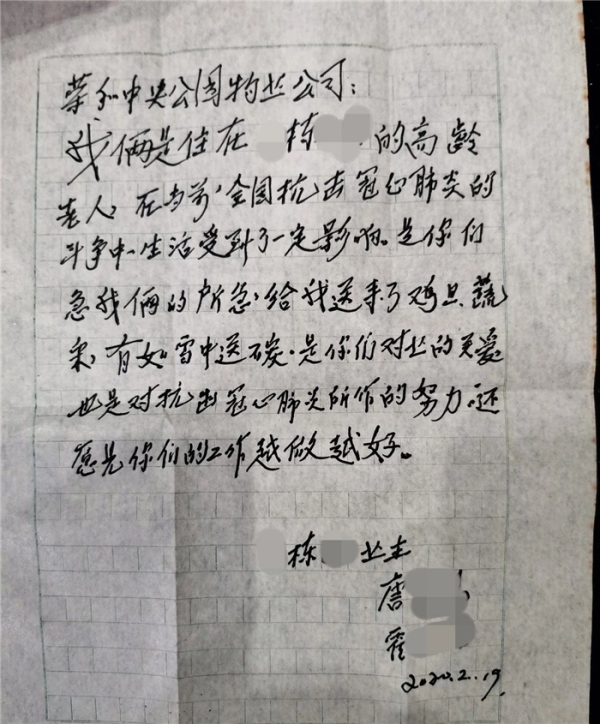 荣和中央公园物业公司：
我俩是住在 栋 的高龄
老人，在当前，全国抗击冠心肺炎的
斗争中，生活受到了一定影响。是你们
急我俩的所急，给我送来了鸡旦蔬
菜，有如雪中送碳。是你们对业的关爱
也是对抗击冠心肺炎所作的努力。还
愿是你们的工作越做越好。
栋 业主
唐
霍
2020.2.19.